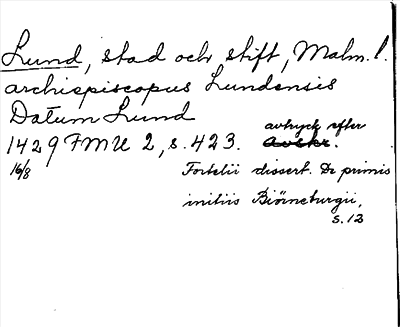 Lund, stad och stift, Malm. l.
archiepiscopus Lundensis
Datum Lund
1429 FMU 2, s. 423. avtryck efter
16/8 Fortelii dissert. De primis
initiis Biörneburgii,
s. 12